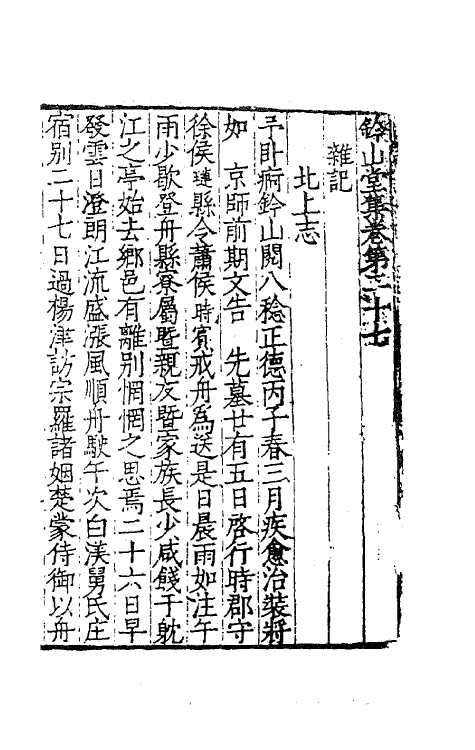 鈐山堂集卷第二十七
雜記
北上志
予卧痾鈐山閱八稔正德丙子春三月疾愈治裝將
如　京師前期文告　先墓廿有五日啓行時郡守
徐侯璉縣令蕭侯時賓戒舟為送是日晨雨如注午
雨少歇登舟縣寮屬暨親友暨家族長少咸餞于
江之亭始去鄉邑有離別惘惘之思焉二十六日早
發雲日澄朗江流盛漲風順舟駛午次白渼舅氏庄
宿別二十七日過楊津訪宗羅諸姻楚蒙侍御以舟